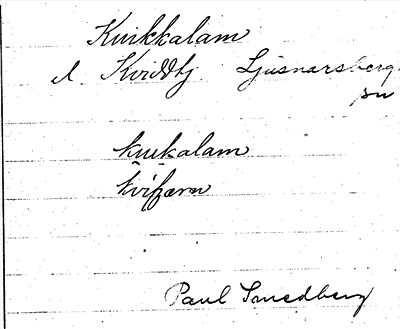 Kvikkalam
d Kviddtj. Ljusnarsberg
sn
kvikalam
kvifarn
Paul Smedberg